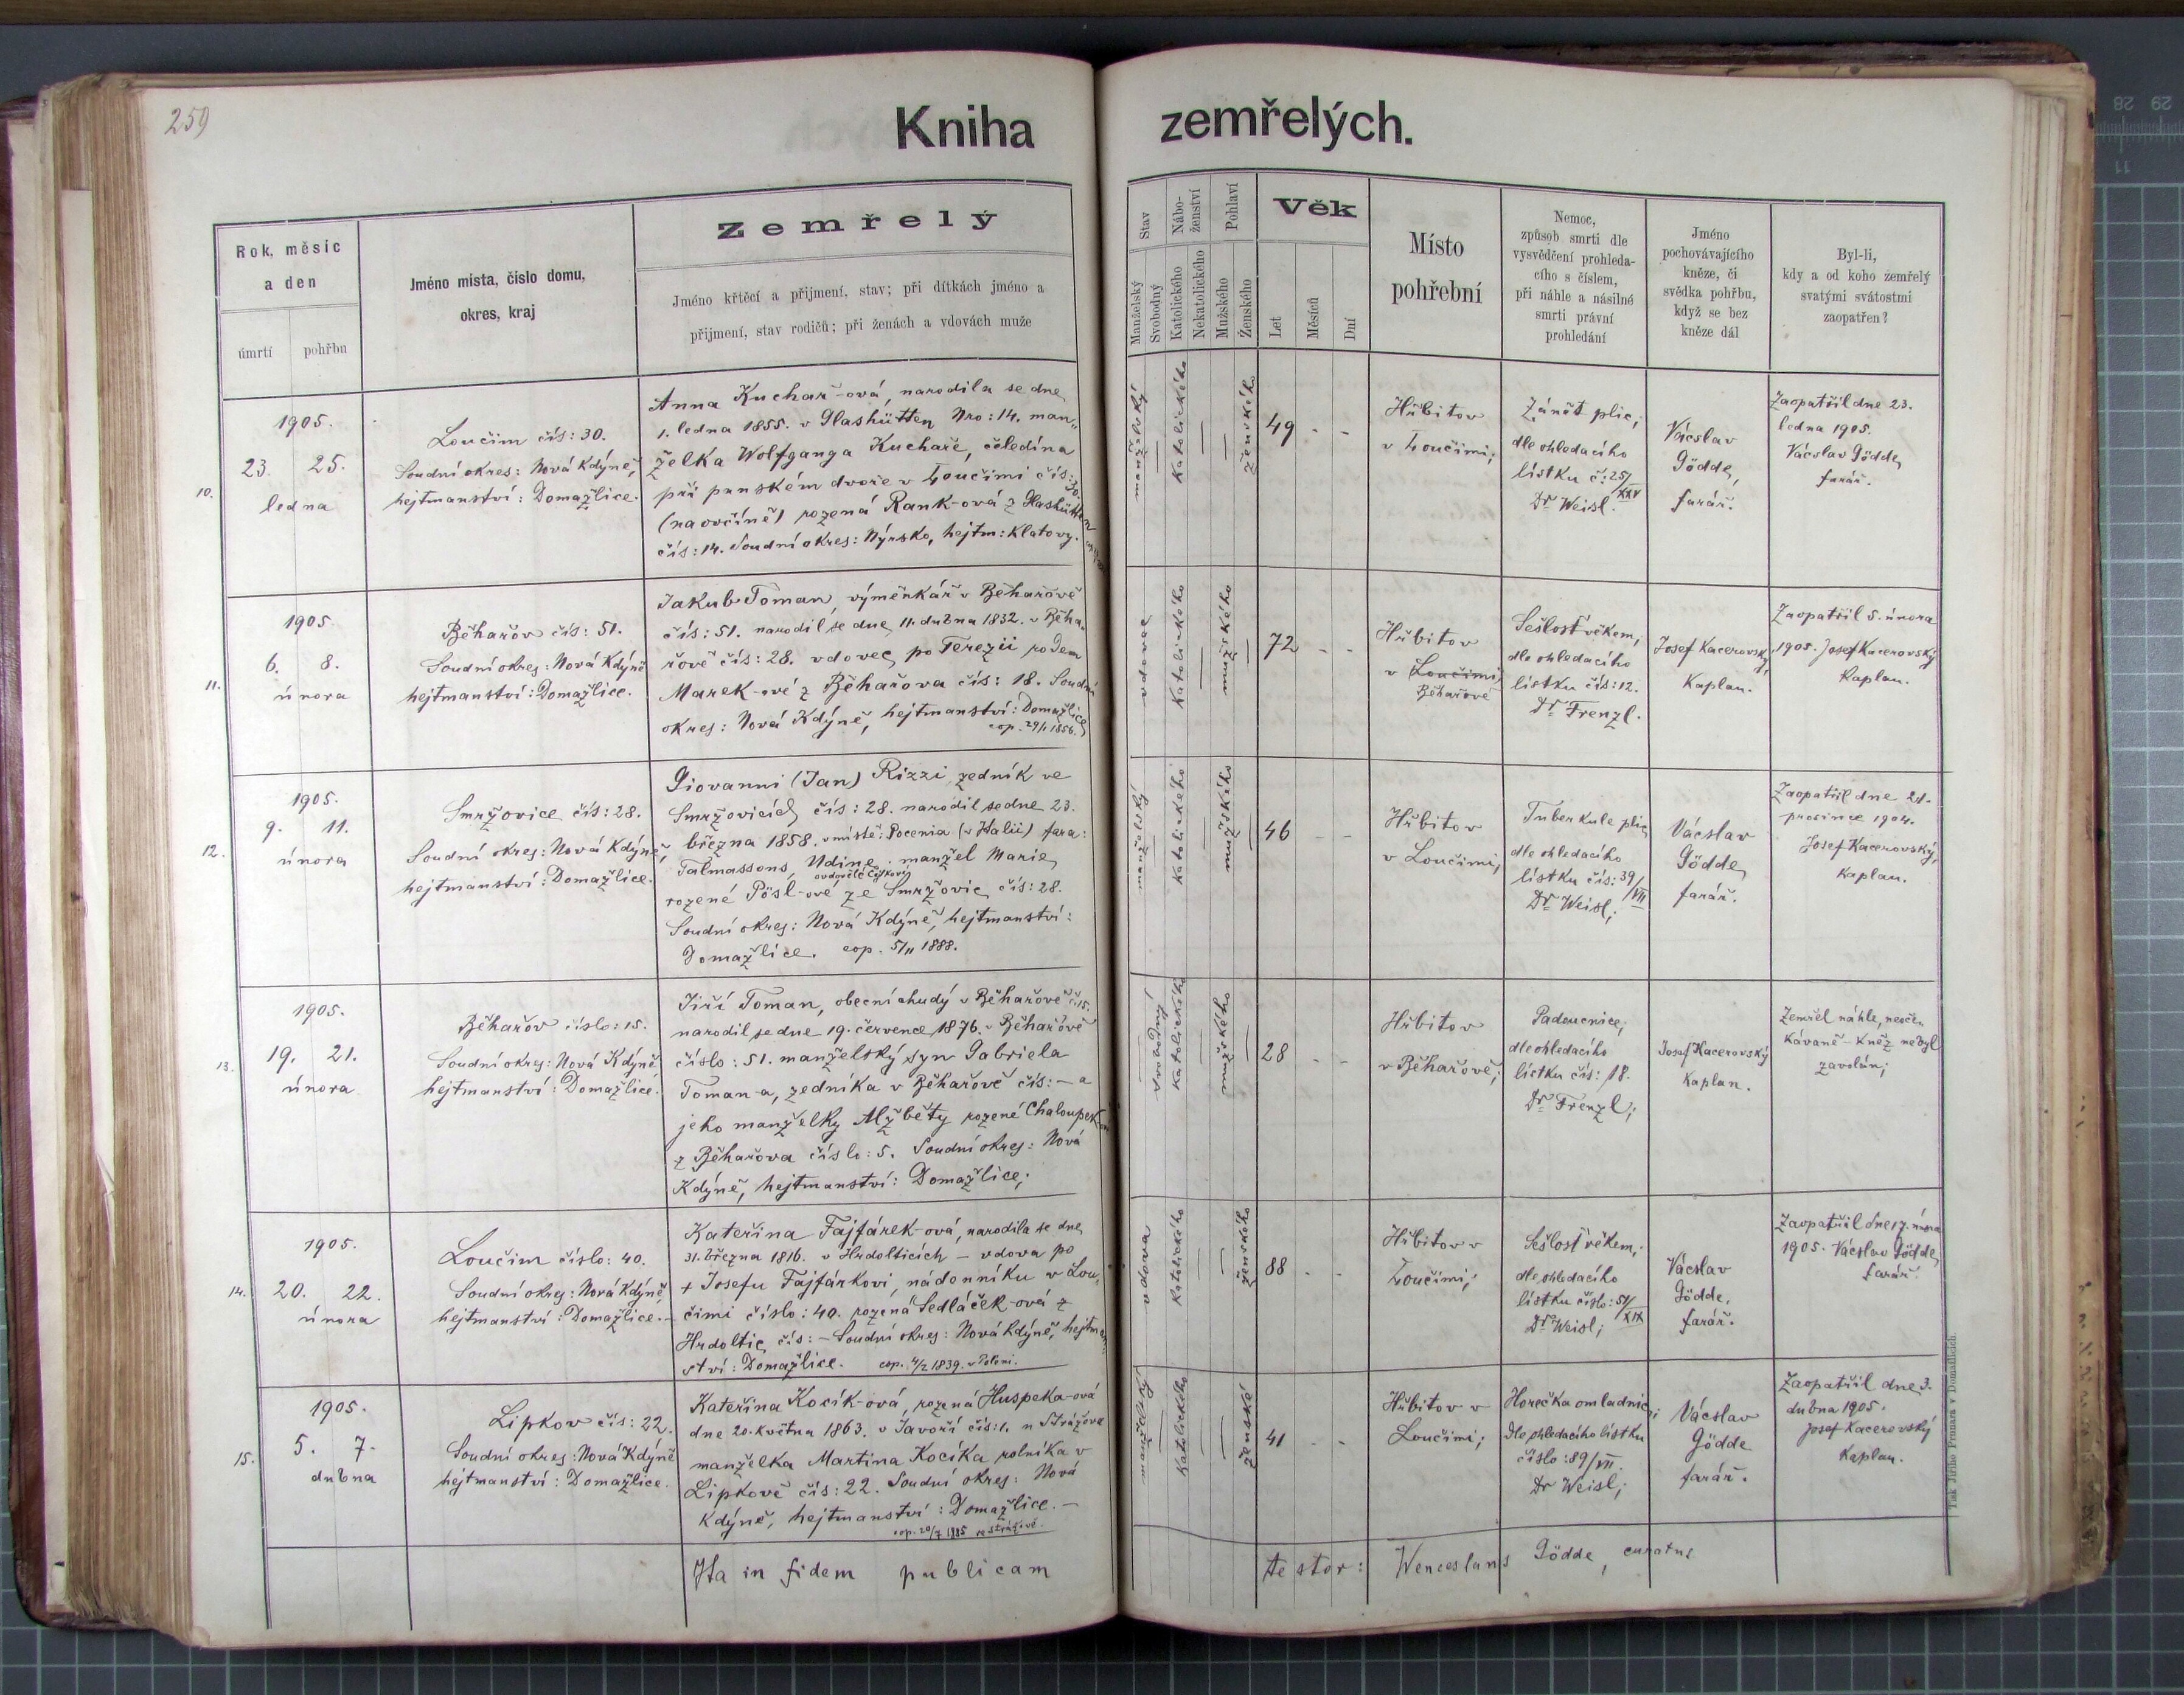 259
Kniha zemřelých.
Rok, měsíc
a den
úmrtí
pohřbu
Jméno místa, číslo domu,
okres, kraj
Zemřelý
Jméno křtěcí a přijmení, stav; při dítkách jméno a
přijmení, stav rodičů; při ženách a vdovách muže
Stav
Manželský
Svobodný
Nábo-
ženství
Katolického
Nekatolického
Pohlaví
Mužského
Ženského
Věk
Let
Měsíců
Dní
Místo
pohřební
Nemoc,
způsob smrti dle
vysvědčení prohleda-
cího s číslem,
při náhle a násilné
smrti právní
prohledání
Jméno
pochovávajícího
kněze, či
svědka pohřbu,
když se bez
kněze dál
Byl-li,
kdy a od koho zemřelý
svatými svátostmi
zaopatřen?
10.
1905.
23. 25.
ledna
Loučim čís: 30.
Soudní okres: Nová Kdýně,
hejtmanství: Domažlice.
Anna Kuchař-ová, narodila se dne
1. ledna 1855. v Glashütten Nro: 14. man„
želka Wolfganga Kuchaře, čeledína
při panském dvoře v Loučimi čís: 30.
(na ovčíně) rozená Rank-ová z Glashütten
čís: 14. Soudní okres: Nýrsko, hejtm: Klatovy.
manželský
Katolického
ženského
49 - -
Hřbitov
v Loučimi;
Zánět plic;
dle ohledacího
lístku č: 25/XXV
Dr Weisl.
Václav
Gödde,
farář.
Zaopatřil dne 23.
ledna 1905.
Václav Gödde,
farář.
11.
1905.
6. 8.
února
Běhařov čís: 51.
Soudní okres: Nová Kdýně
hejtmanství: Domažlice.
Jakub Toman, výměnkář v Běhařově
čís: 51. narodil se dne 11. dubna 1832. v Běha„
řově čís: 28. vdovec po Terezii rodem
Marek-ové z Běhařova čís: 18. Soudní
okres: Nová Kdýně, hejtmanství: Domažlice,
cop. 29/1 1856.
vdovec
Katolického
mužského
72 - -
Hřbitov
v Loučimi,
Běhařově
Sešlost věkem,
dle ohledacího
lístku čís: 12.
Dr Frenzl.
Josef Kacerovský,
Kaplan.
Zaopatřil 5. února
1905. Josef Kacerovský
Kaplan.
12.
1905.
9. 11.
února
Smržovice čís: 28.
Soudní okres: Nová Kdýně,
hejtmanství: Domažlice.
Giovanni (Jan) Rizzi, zedník ve
Smržovicích čís: 28. narodil se dne 23.
března 1858. v místě: Pocenia (v Italii) fara:
Talmassons, Udine. manžel Marie,
ovdovělé
rozené Pösl-ové ze Smržovic čís: 28.
Soudní okres: Nová Kdýně, hejtmanství:
Domažlice. cop. 5/11 1888.
manželský
Katolického
mužského
46 - -
Hřbitov
v Loučimi;
Tuberkule plic,
dle ohledacího
lístku čís: 39/VII
Dr Weisl;
Václav
Gödde,
farář.
Zaopatřil dne 21.
prosince 1904.
Josef Kacerovský,
Kaplan.
13.
1905.
19. 21.
února
Běhařov číslo: 15.
Soudní okres: Nová Kdýně
hejtmanství: Domažlice.
Jiří Toman, obecní chudý v Běhařově č: 15.
narodil se dne 19. července 1876. v Běhařově
číslo: 51. manželský syn Gabriela
Toman-a, zedníka v Běhařově čís: - a
jeho manželky Alžběty rozené Chaloupek-ové
z Běhařova číslo: 5. Soudní okres: Nová
Kdýně, hejtmanství: Domažlice;
svobodný
Katolického
mužského
28 - -
Hřbitov
v Běhařově;
Padoucnice;
dle ohledacího
lístku čís: 18.
Dr Frenzl;
Josef Kacerovský
Kaplan.
Zemřel náhle, neoče„
kávaně - Kněz nebyl
zavolán;
14.
1905.
20. 22.
února
Loučim číslo: 40.
Soudní okres: Nová Kdýně,
hejtmanství: Domažlice.
Kateřina Fajfárek-ová, narodila se dne
31. března 1816. v Hrdolticích - vdova po
+ Josefu Fajfárkovi, nádenníku v Lou„
čimi číslo: 40. rozená Sedláček-ová z
Hrdoltic čís: - Soudní okres: Nová Kdýně, hejtman
ství: Domažlice. cop. 4/2 1839.
vdova
Katolického
ženského
88 - -
Hřbitov v
Loučimi;
Sešlost věkem,
dle ohledacího
lístku číslo: 51/XIX
Dr Weisl;
Václav
Gödde,
farář.
Zaopatřil dne 17. února
1905. Václav Gödde,
farář.
15.
1905.
5. 7.
dubna
Lipkov čís: 22.
Soudní okres: Nová Kdýně
hejtmanství: Domažlice.
Kateřina Kocík-ová, rozená Huspeka-ová
dne 20. května 1863. v Javoří čís: 1. u Strážova
manželka Martina Kocíka rolníka v
Lipkově čís: 22. Soudní okres: Nová
Kdýně, hejtmanství: Domažlice. -
cop. 20/7 1885 ve Strážově.
manželský
Katolického
ženské
41 - -
Hřbitov v
Loučimi;
Horečka omladnic;
dle ohledacího lístku
číslo: 89/VII.
Dr Weisl;
Václav
Gödde
farář.
Zaopatřil dne 3.
dubna 1905.
Josef Kacerovský
Kaplan.
Ita in fidem publicam testor: Wenceslaus Gödde, curatus
Tisk Jiřího Prunara v Domažlicích.